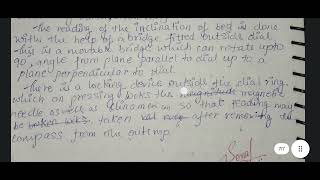 The reading of the inclination of bed is done
with the help of a bridge fitted outside dial
This is a movable bridge which can rotate upto
90, angle from plane parallel to dial up to a
plane perpendicular to dial.
There is a locking device outside the dial ring,
which on pressing locks the magnetic
needle as well as clinometer so that reading may
be taken after removing the
compass from the outcrop
7/7